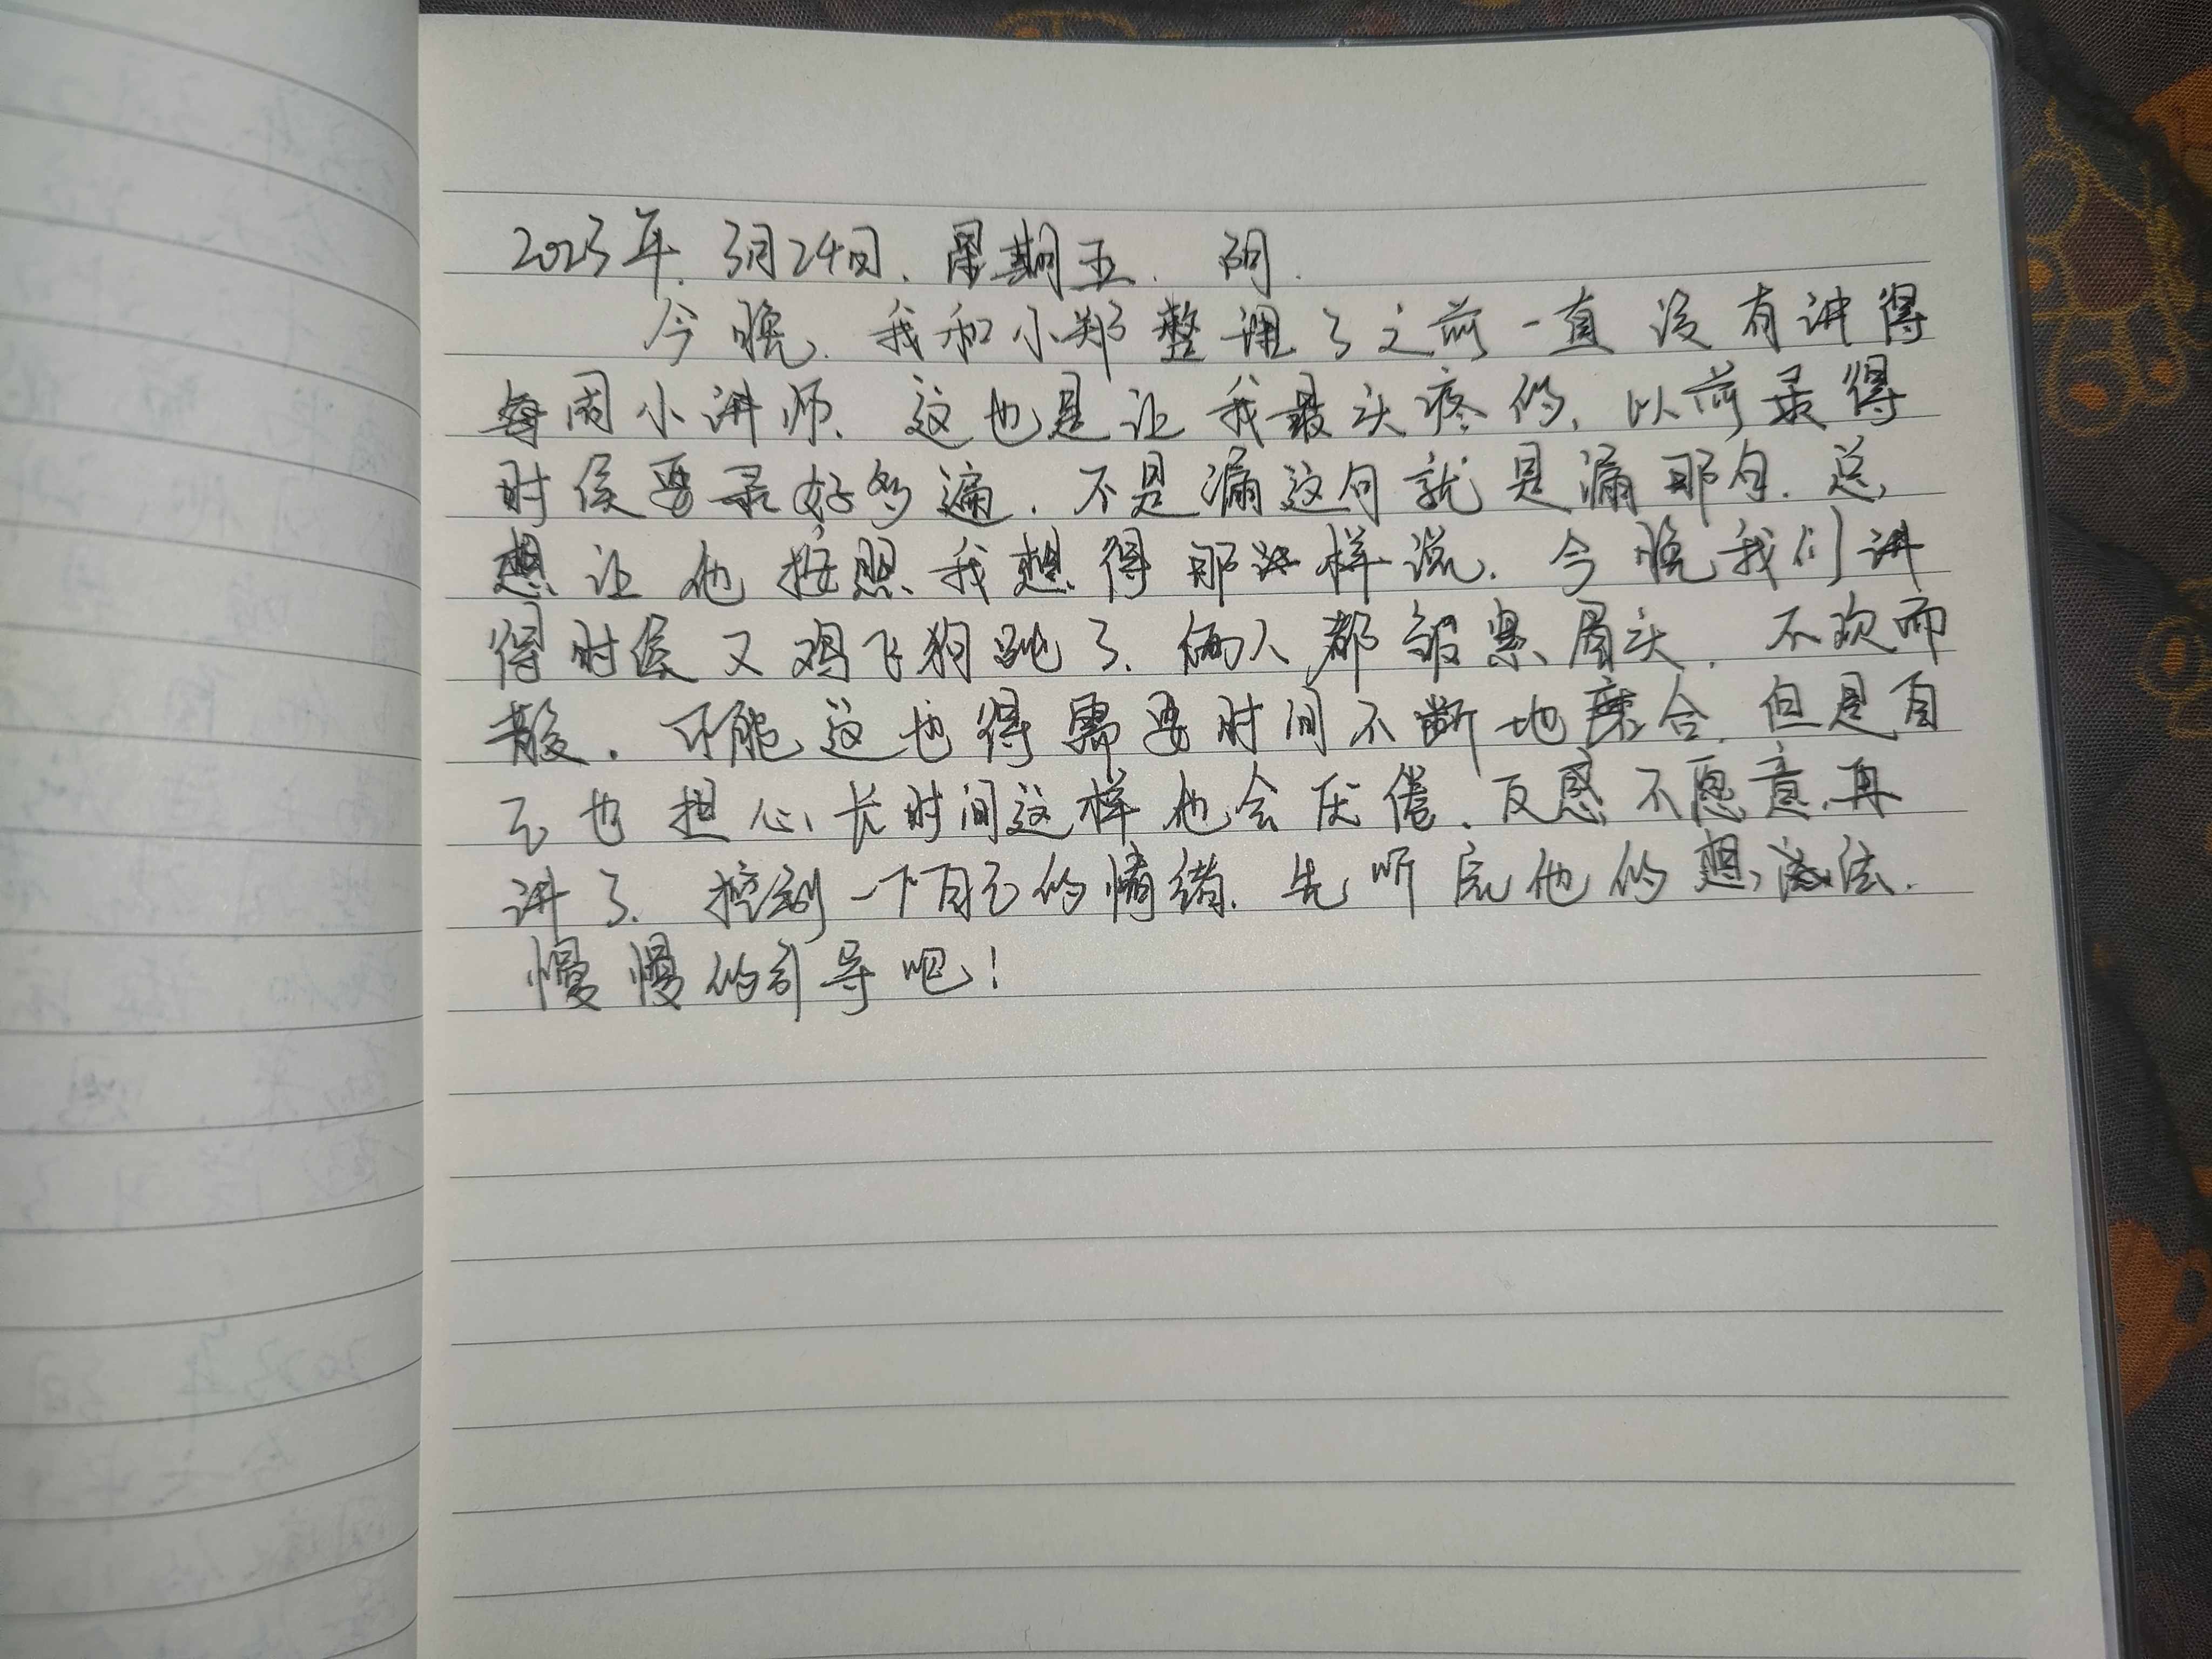 2023年.3月24日.星期五.阴.
今晚.我和小郑整理了之前一直没有讲得
每周小讲师.这也是让我最头疼的.以前录得
时侯要录好多遍.不是漏这句就是漏那句.总
想让他按照我想得那样说.今晚我们讲
得时侯又鸡飞狗跳了.俩人都皱紧眉头.不欢而
散.可能这也得需要时间不断地磨合.但是自
己也担心长时间这样他会厌倦.反感不愿意再
讲了.控制一下自己的情绪.先听完他的想法.
慢慢的引导吧!